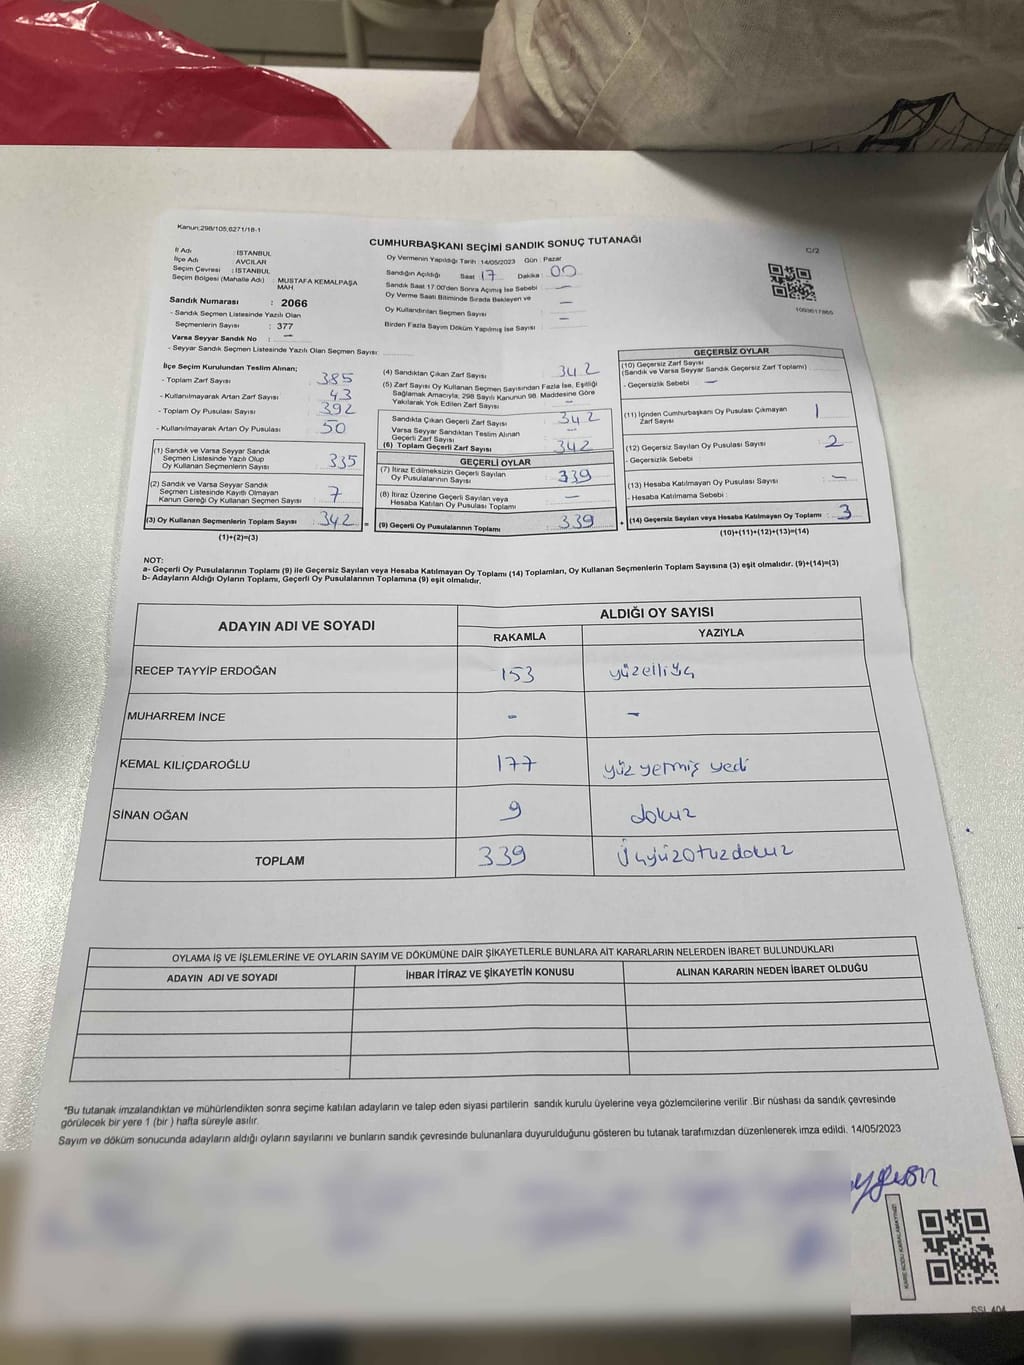 Kanun;298/105,6271/18-1
CUMHURBAŞKANI SEÇİMİ SANDIK SONUÇ TUTANAĞI
C/2
İl Adı : İSTANBUL
İlçe Adı : AVCILAR
Seçim Çevresi : İSTANBUL
Seçim Bölgesi (Mahalle Adı) : MUSTAFA KEMALPAŞA MAH.
Sandık Numarası : 2066
- Sandık Seçmen Listesinde Yazılı Olan
Seçmenlerin Sayısı : 377
Varsa Seyyar Sandık No : —
- Seyyar Sandık Seçmen Listesinde Yazılı Olan Seçmen Sayısı
Oy Vermenin Yapıldığı Tarih : 14/05/2023 Gün : Pazar
Sandığın Açıldığı Saat : 17 Dakika : 00
Sandık Saat 17:00'den Sonra Açımış İse Sebebi —
Oy Verme Saati Bitiminde Sırada Bekleyen ve
Oy Kullandırılan Seçmen Sayısı —
Birden Fazla Sayım Döküm Yapılmış İse Sayısı —
İlçe Seçim Kurulundan Teslim Alınan;
- Toplam Zarf Sayısı : 385
- Kullanılmayarak Artan Zarf Sayısı : 43
- Toplam Oy Pusulası Sayısı : 392
- Kullanılmayarak Artan Oy Pusulası : 50
(1) Sandık ve Varsa Seyyar Sandık
Seçmen Listesinde Yazılı Olup
Oy Kullanan Seçmenlerin Sayısı : 335
(2) Sandık ve Varsa Seyyar Sandık
Seçmen Listesinde Kayıtlı Olmayan
Kanun Gereği Oy Kullanan Seçmen Sayısı : 7
(3) Oy Kullanan Seçmenlerin Toplam Sayısı : 342
(1)+(2)=(3)
(4) Sandıktan Çıkan Zarf Sayısı 342
(5) Zarf Sayısı Oy Kullanan Seçmen Sayısından Fazla İse, Eşitliği
Sağlamak Amacıyla; 298 Sayılı Kanunun 98. Maddesine Göre
Yakılarak Yok Edilen Zarf Sayısı —
Sandıkta Çıkan Geçerli Zarf Sayısı 342
Varsa Seyyar Sandıktan Teslim Alınan
Geçerli Zarf Sayısı —
(6) Toplam Geçerli Zarf Sayısı 342
GEÇERLİ OYLAR
(7) İtiraz Edilmeksizin Geçerli Sayılan
Oy Pusulalarının Sayısı : 339
(8) İtiraz Üzerine Geçerli Sayılan veya
Hesaba Katılan Oy Pusulası Toplamı : —
(9) Geçerli Oy Pusulalarının Toplamı : 339
GEÇERSİZ OYLAR
(10) Geçersiz Zarf Sayısı
(Sandık ve Varsa Seyyar Sandık Geçersiz Zarf Toplamı)
- Geçersizlik Sebebi : —
(11) İçinden Cumhurbaşkanı Oy Pusulası Çıkmayan
Zarf Sayısı : 1
(12) Geçersiz Sayılan Oy Pusulası Sayısı : 2
- Geçersizlik Sebebi
(13) Hesaba Katılmayan Oy Pusulası Sayısı : —
- Hesaba Katılmama Sebebi :
(14) Geçersiz Sayılan veya Hesaba Katılmayan Oy Toplamı : 3
(10)+(11)+(12)+(13)=(14)
NOT:
a- Geçerli Oy Pusulasının Toplamı (9) ile Geçersiz Sayılan veya Hesaba Katılmayan Oy Toplamı (14) Toplamları, Oy Kullanan Seçmenlerin Toplam Sayısına (3) eşit olmalıdır. (9)+(14)=(3)
b- Adayların Aldığı Oyların Toplamı, Geçerli Oy Pusulalarının Toplamına (9) eşit olmalıdır.
ADAYIN ADI VE SOYADI
ALDIĞI OY SAYISI
RAKAMLA YAZIYLA
RECEP TAYYİP ERDOĞAN 153 yüzelliüç
MUHARREM İNCE - -
KEMAL KILIÇDAROĞLU 177 yüz yetmiş yedi
SİNAN OĞAN 9 dokuz
TOPLAM 339 Üçyüzotuzdokuz
OYLAMA İŞ VE İŞLEMLERİNE VE OYLARIN SAYIM VE DÖKÜMÜNE DAİR ŞİKAYETLERLE BUNLARA AİT KARARLARIN NELERDEN İBARET BULUNDUKLARI
ADAYIN ADI VE SOYADI İHBAR İTİRAZ VE ŞİKAYETİN KONUSU ALINAN KARARIN NEDEN İBARET OLDUĞU
*Bu tutanak imzalandıktan ve mühürlendikten sonra seçime katılan adayların ve talep eden siyasi partilerin sandık kurulu üyelerine veya gözlemcilerine verilir .Bir nüshası da sandık çevresinde
görülecek bir yere 1 (bir ) hafta süreyle asılır.
Sayım ve döküm sonucunda adayların aldığı oyların sayılarını ve bunların sandık çevresinde bulunanlara duyurulduğunu gösteren bu tutanak tarafımızdan düzenlenerek imza edildi. 14/05/2023
KARE KODU KARALAMAYINIZ